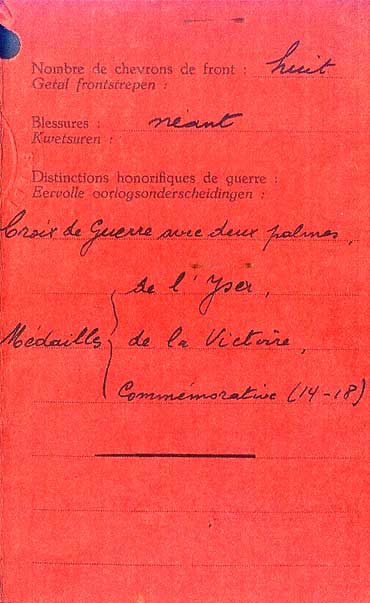 Nombre de chevrons de front : huit
Getal frontstrepen :
Blessures : néant
Kwetsuren :
Distinctions honorifiques de guerre :
Eervolle oorlogsonderscheidingen :
Croix de Guerre avec deux palmes,
de l'Yser,
Médailles de la Victoire,
Commémorative (14-18)